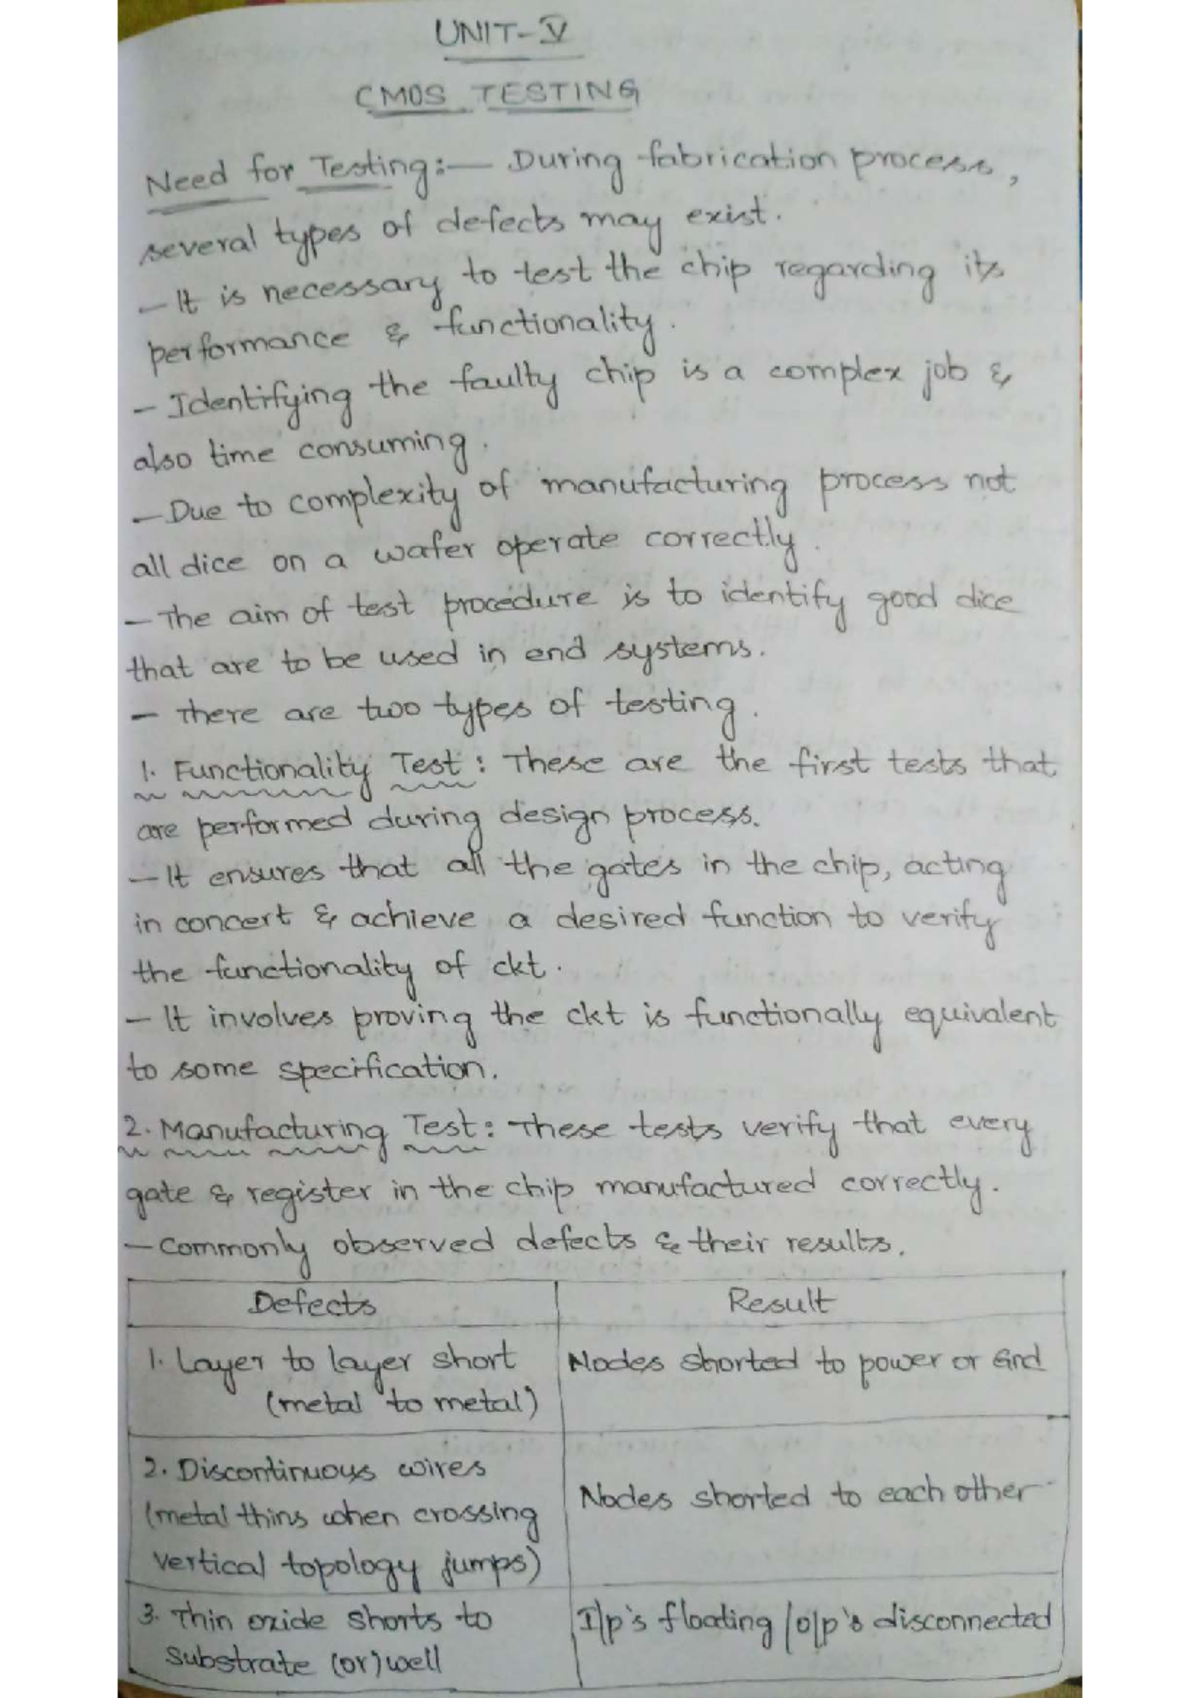 UNIT-V
CMOS TESTING
Need for Testing:— During fabrication process,
several types of defects may exist.
— It is necessary to test the chip regarding its
performance & functionality.
— Identifying the faulty chip is a complex job &
also time consuming.
— Due to complexity of manufacturing process not
all dice on a wafer operate correctly.
— The aim of test procedure is to identify good dice
that are to be used in end systems.
— There are two types of testing.
1. Functionality Test: These are the first tests that
are performed during design process.
— It ensures that all the gates in the chip, acting
in concert & achieve a desired function to verify
the functionality of ckt.
— It involves proving the ckt is functionally equivalent
to some specification.
2. Manufacturing Test: These tests verify that every
gate & register in the chip manufactured correctly.
— Commonly observed defects & their results.
Defects Result
1. Layer to layer short Nodes shorted to power or Gnd
(metal to metal)
2. Discontinuous wires
(metal thins when crossing Nodes shorted to each other
vertical topology jumps)
3. Thin oxide shorts to I/p's floating /o/p's disconnected
substrate (or) well